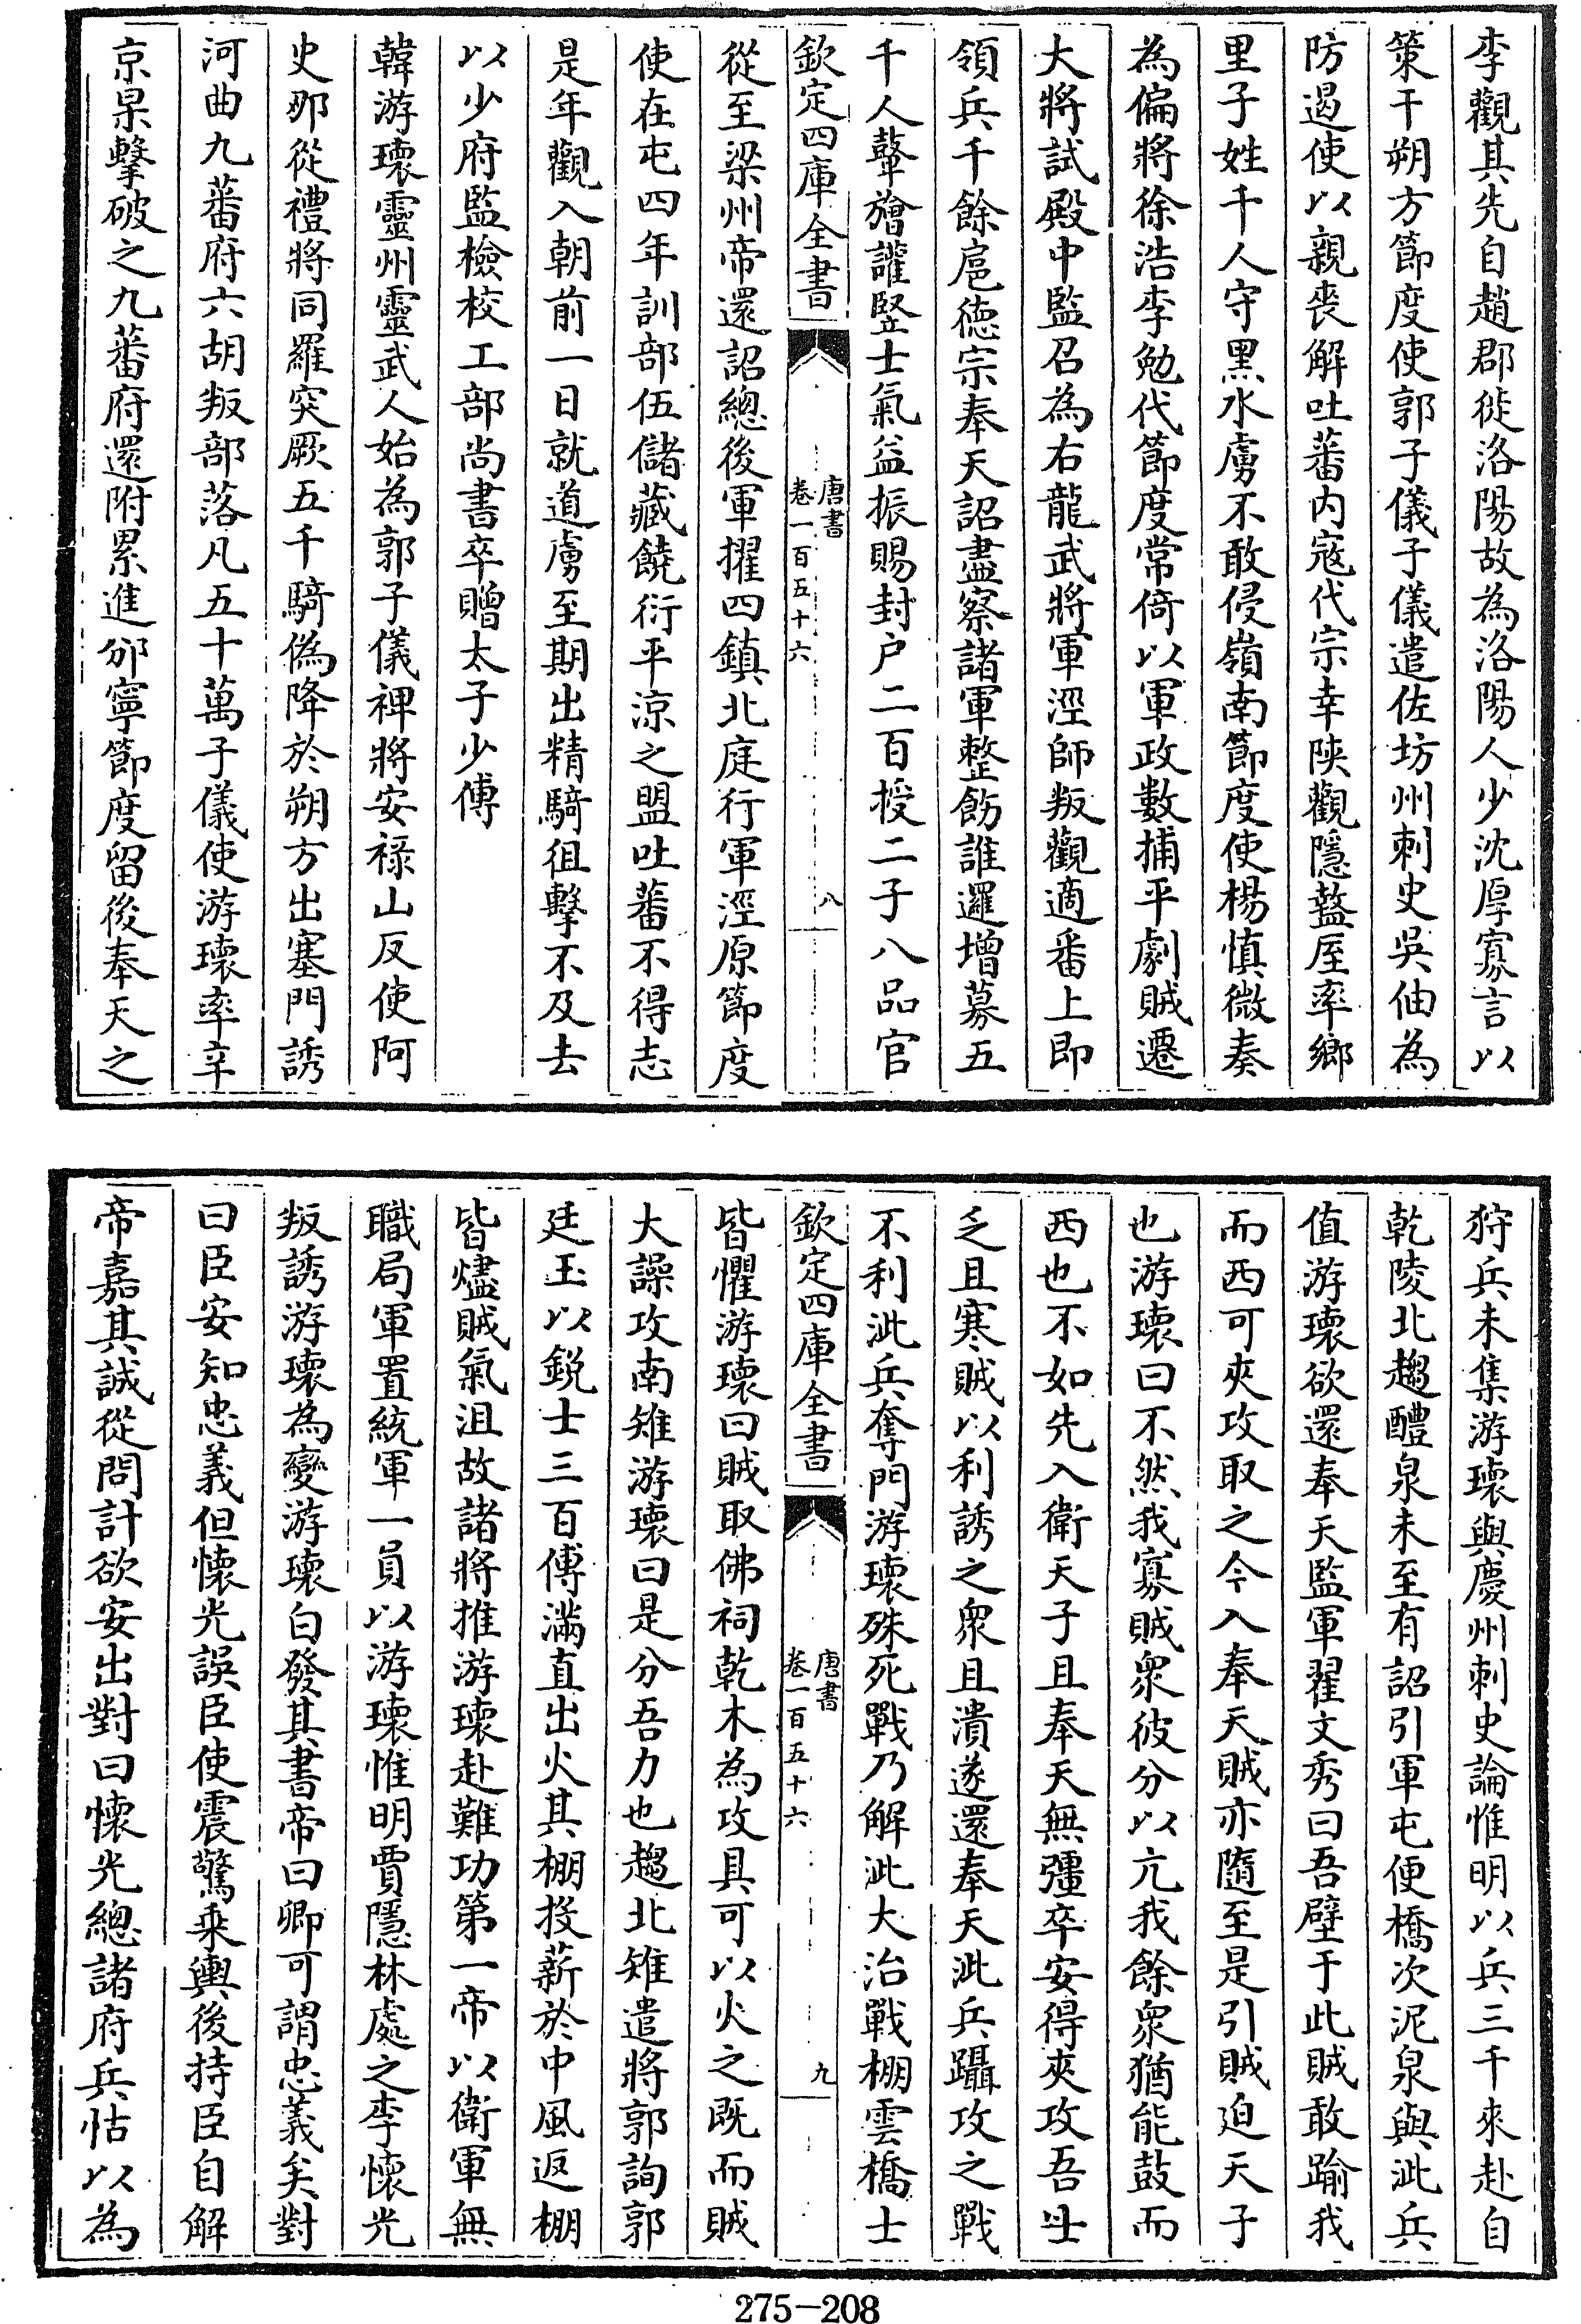 李觀其先自趙郡徙洛陽故為洛陽人少沈厚寡言以
策干朔方節度使郭子儀子儀遣佐坊州刺史吳伷為
防遏使以親喪解吐蕃内寇代宗幸陜觀隱盩厔率鄉
里子姓千人守黑水虜不敢侵嶺南節度使楊慎微奏
為偏將徐浩李勉代節度常倚以軍政數捕平劇賊遷
大將試殿中監召為右龍武將軍涇師叛觀適番上即
領兵千餘扈德宗奉天詔盡察諸軍整飭誰邏增募五
千人鼙旝讙竪士氣益振賜封户二百授二子八品官
欽定四庫全書
唐書
卷一百五十六
八
從至梁州帝還詔總後軍擢四鎮北庭行軍涇原節度
使在屯四年訓部伍儲藏饒衍平涼之盟吐蕃不得志
是年觀入朝前一日就道虜至期出精騎徂擊不及去
以少府監檢校工部尚書卒贈太子少傅
韓游瓌靈州靈武人始為郭子儀裨將安禄山反使阿
史那從禮將同羅突厥五千騎偽降於朔方出塞門誘
河曲九蕃府六胡叛部落凡五十萬子儀使游瓌率辛
京杲擊破之九蕃府還附累進邠寧節度留後奉天之
狩兵未集游瓌與慶州刺史論惟明以兵三千來赴自
乾陵北趨醴泉未至有詔引軍屯便橋次泥泉與泚兵
值游瓌欲還奉天監軍翟文秀曰吾壁于此賊敢踰我
而西可夾攻取之今入奉天賊亦隨至是引賊迫天子
也游瓌曰不然我寡賊衆彼分以亢我餘衆猶能鼓而
西也不如先入衛天子且奉天無彊卒安得夾攻吾士
乏且寒賊以利誘之衆且潰遂還奉天泚兵躡攻之戰
不利泚兵奪門游瓌殊死戰乃解泚大治戰棚雲橋士
欽定四庫全書
唐書
卷一百五十六
九
皆懼游瓌曰賊取佛祠乾木為攻具可以火之既而賊
大譟攻南雉游瓌曰是分吾力也趨北雉遣將郭詢郭
廷玉以銳士三百傅滿直出火其棚投薪於中風返棚
皆燼賊氣沮故諸將推游瓌赴難功第一帝以衛軍無
職局軍置統軍一員以游瓌惟明賈隱林處之李懷光
叛誘游瓌為變游瓌白發其書帝曰卿可謂忠義矣對
曰臣安知忠義但懷光誤臣使震驚乘輿後持臣自解
帝嘉其誠從問計欲安出對曰懷光總諸府兵怙以為
275-208